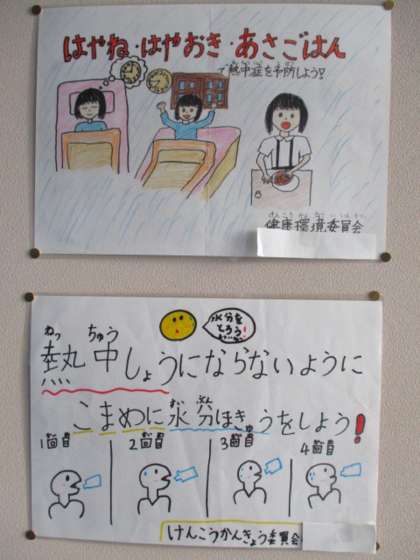 はやね・はやおき・あさごはん
で熱中症を予防しよう!
健康環境委員会
水分をとろう
ねっ ちゅう
熱中しょうにならないように
こまめに水分ほきゅうをしよう!
1回目 2回目 3回目 4回目
けんこうかんきょう委員会